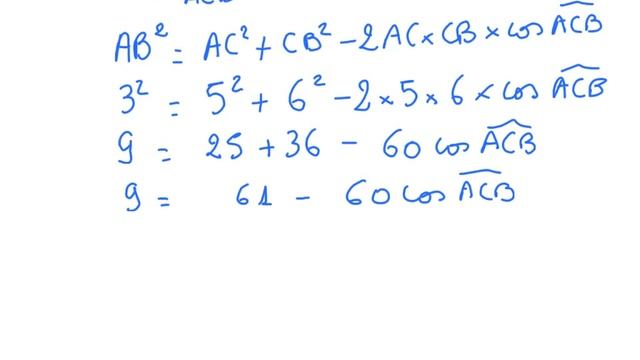 ACB
AB² = AC² + CB² - 2AC × CB × cos ACB
3² = 5² + 6² - 2 × 5 × 6 × cos ACB
9 = 25 + 36 - 60 cos ACB
9 = 61 - 60 cos ACB